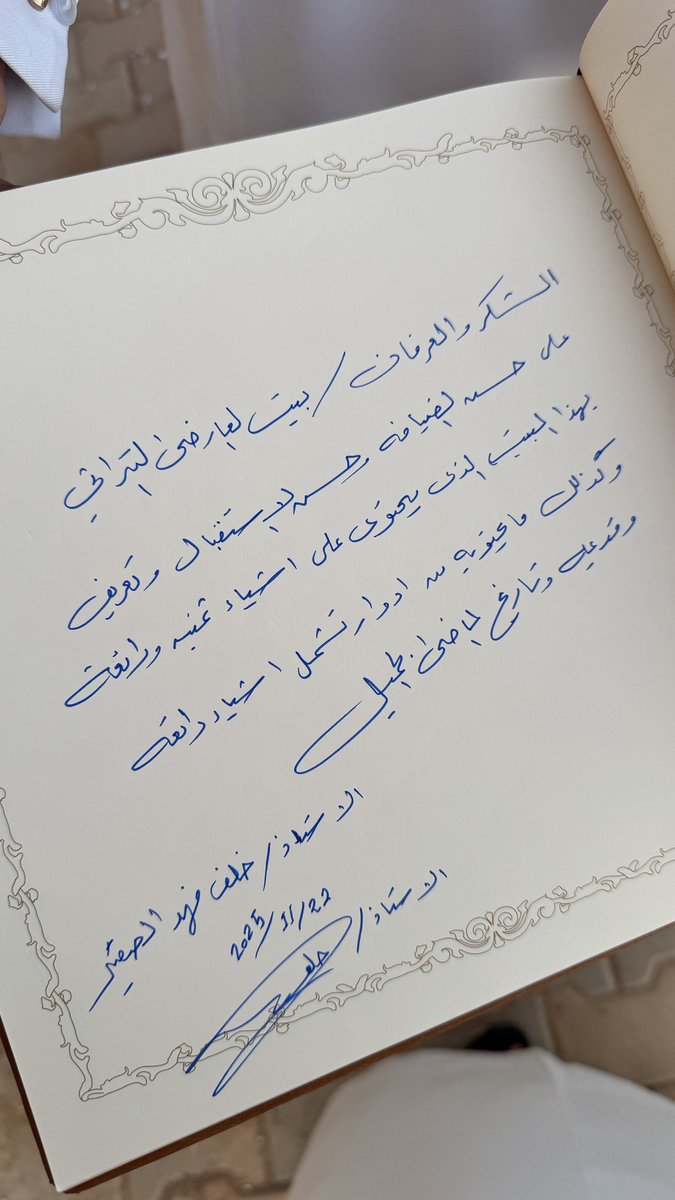 الشكر والعرفان / بيت العارضي التراثي
على حسن الضيافه وحسن الاستقبال وتعريف
بهذا البيت الذي يحتوي على اشياء ثمينه ورائعة
وكذلك ما يحتويه من ادوار تشمل اشياء رائعه
وقديمه وتاريخ الماضي الجميل
الاستاذ / خلف فهد
2025/11/22
الاستاذ /